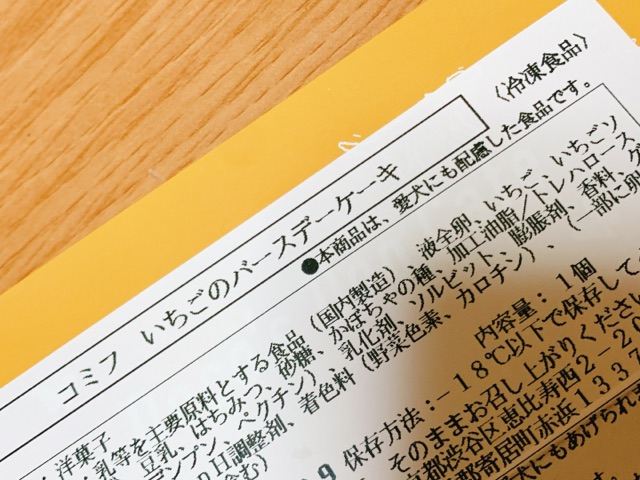 〈冷凍食品〉
コミフ いちごのバースデーケーキ
●本商品は、愛犬にも配慮した食品です。
洋菓子
・乳等を主要原料とする食品（国内製造）、液全卵、いちご、いちごソ
豆乳、はちみつ、砂糖、かぼちゃの種、加工油脂／トレハロース
コンプン、ペクチン）、乳化剤、ソルビット、膨脹剤、香料、ゲ
pH調整剤、着色料（野菜色素、カロチン）、（一部に卵
含む）
内容量：1個
保存方法：−18℃以下で保存して
そのままお召し上がりくださ
都渋谷区恵比寿西2−20
郡寄居町赤浜1337
犬にもあげられま